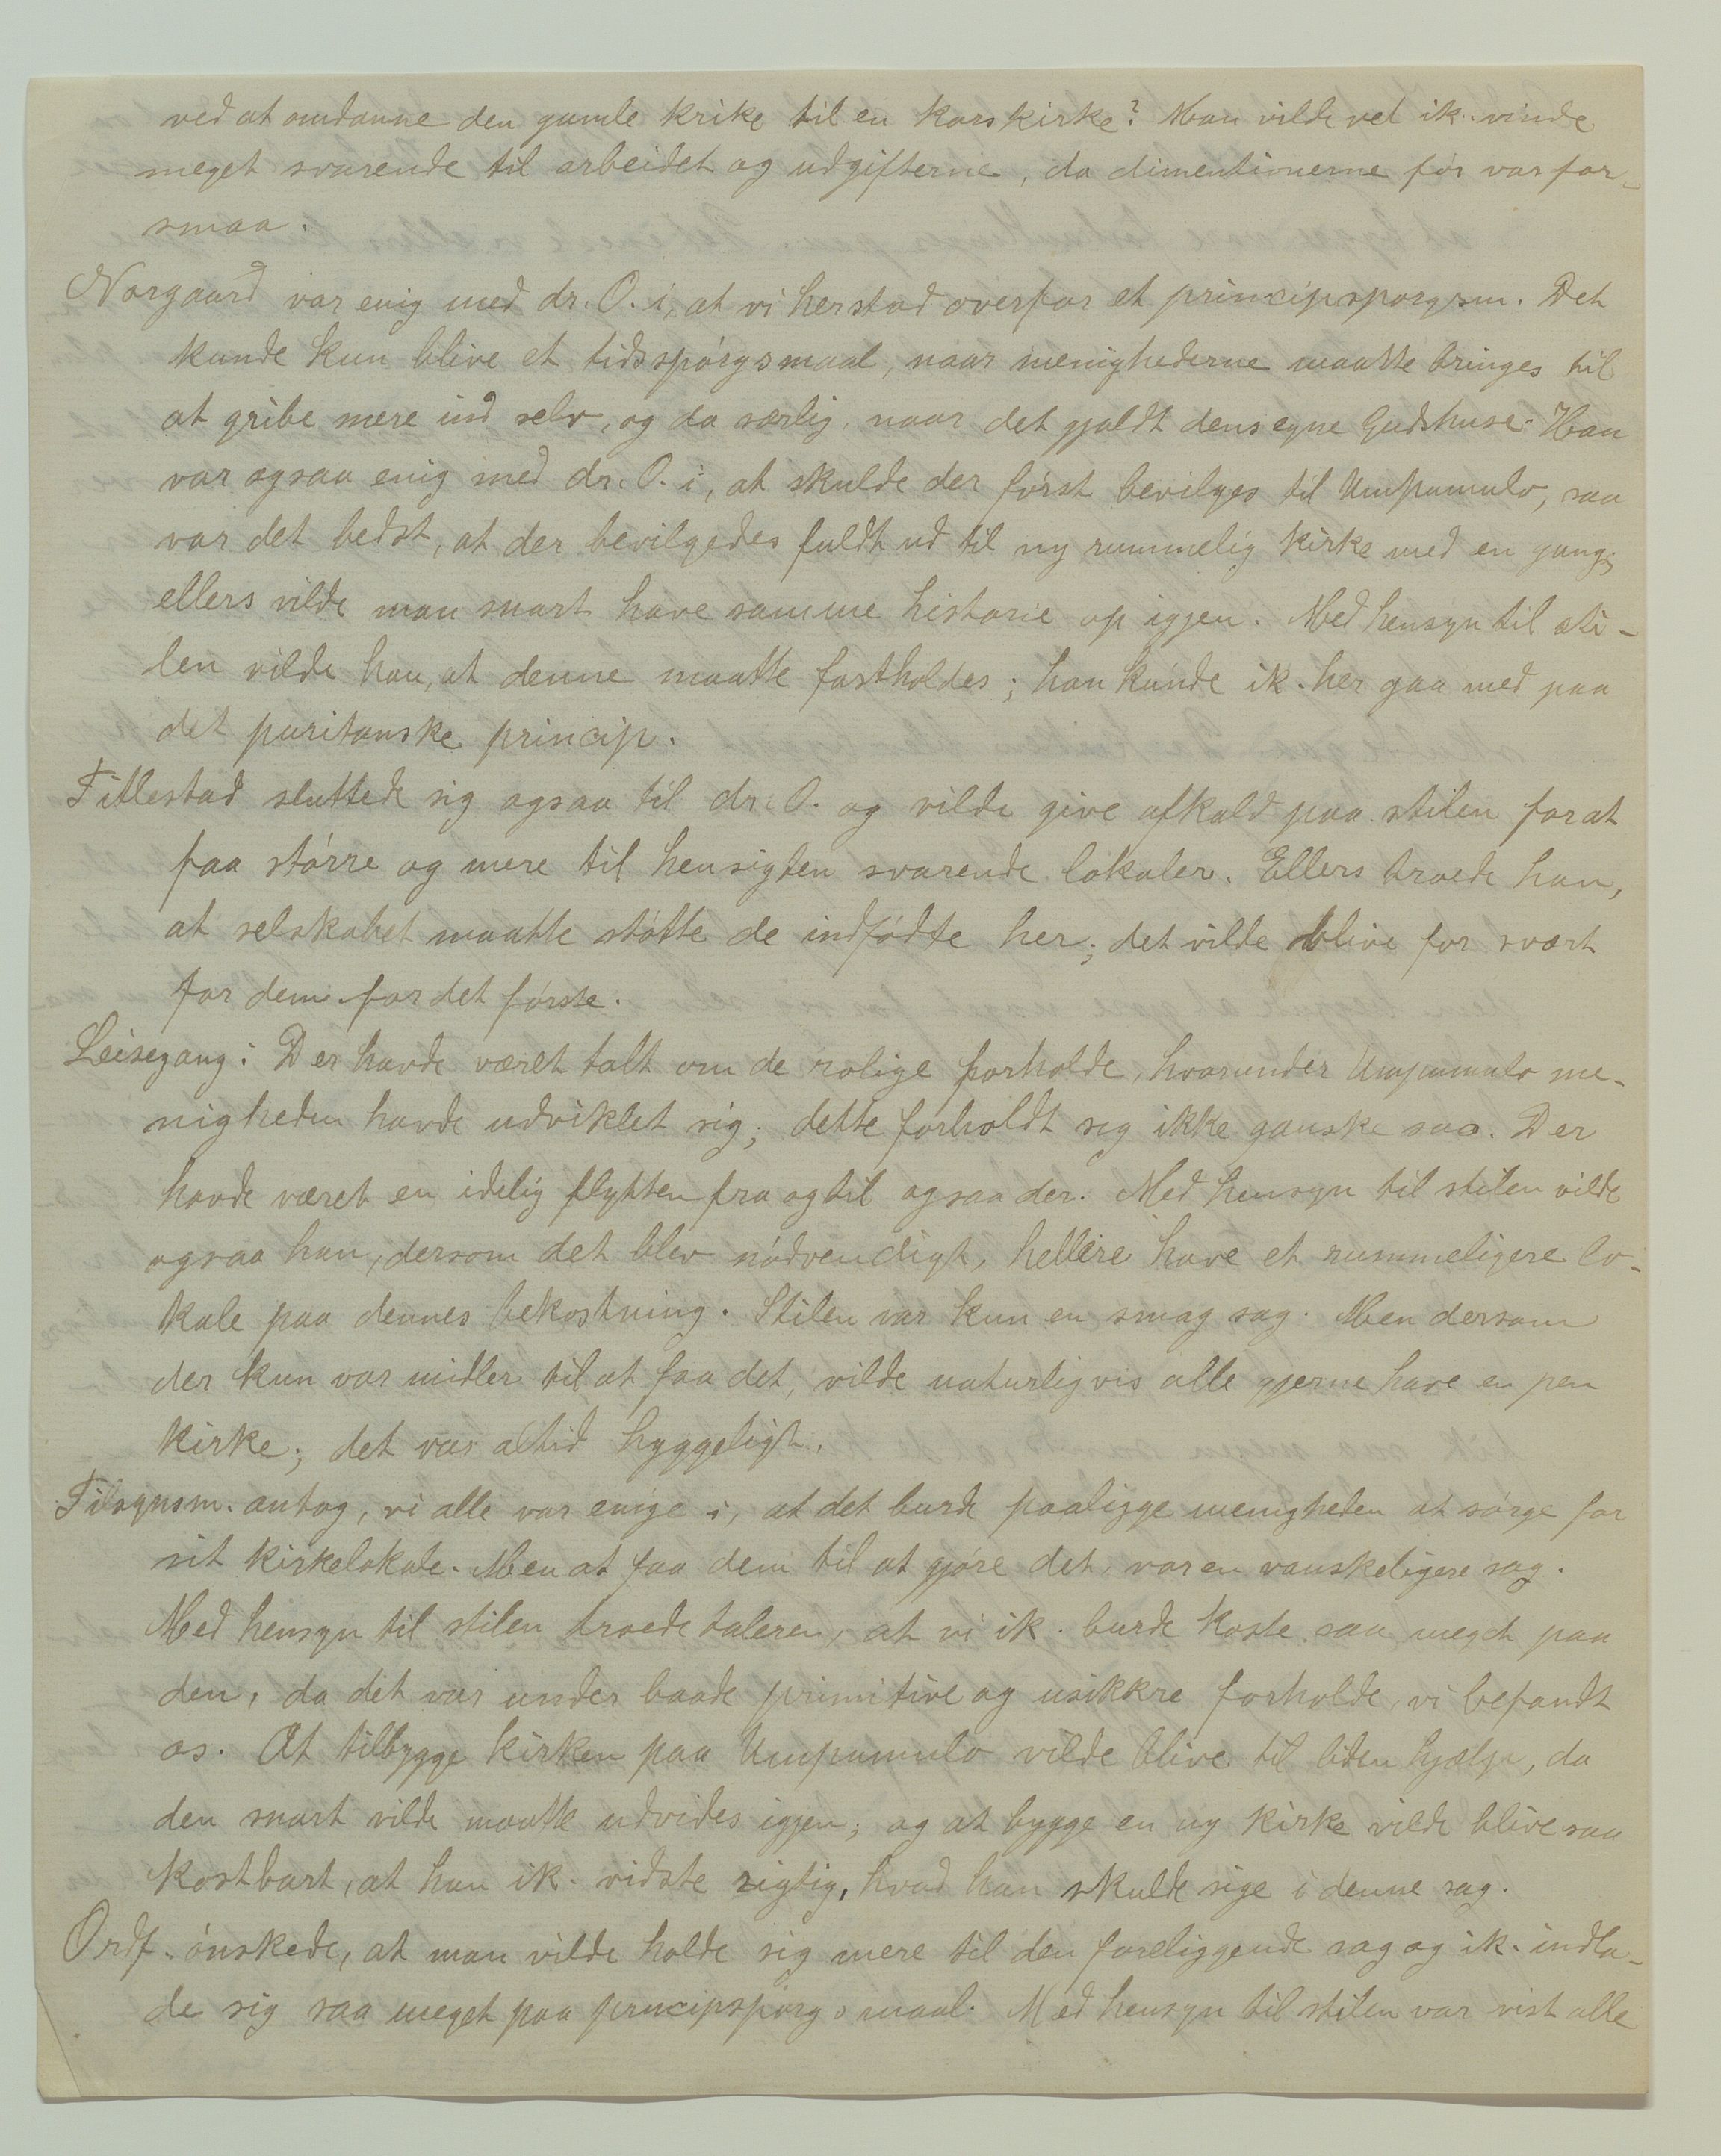 ved at omdanne den gamle krike til en korskirke? Man vilde vel ik. vinde
meget svarende til arbeidet og udgifterne, da dimentionerne før var for
smaa.
Norgaard var enig med dr. O. i, at vi her stod overfor et principspørgsm. Det
kunde kun blive et tidsspørgsmaal, naar menighederne maatte bringes til
at gribe mere ind selv, og da særlig, naar det gjaldt dens egne Gudshuse. Han
var ogsaa enig med dr. O. i, at skulde der først bevilges til Umpumulo, saa
var det bedst, at der bevilgedes fuldt ud til ny rummelig kirke med en gang;
ellers vilde man snart have samme historie op igjen. Med hensyn til sti-
len vilde han, at denne maatte fastholdes; han kunde ik. her gaa med paa
det puritanske princip.
Titlestad sluttede sig ogsaa til dr. O. og vilde give afkald paa stilen for at
faa større og mere til hensigten svarende lokaler. Ellers troede han,
at selskabet maatte støtte de indfødte her; det vilde blive for svært
for dem for det første.
Leisegang: Der havde været talt om de rolige forholde, hvorunder Umpumulo me-
nigheden havde udviklet sig; dette forholdt sig ikke ganske saa. Der
havde været en idelig flytten fra og til ogsaa der. Med hensyn til stilen vilde
ogsaa han, dersom det blev nødvendigt, hellere have et rummeligere lo-
kale paa dennes bekostning. Stilen var kun en smag sag. Men dersom
der kun var midler til at faa det, vilde naturligvis alle gjerne have en pen
kirke; det var altid hyggeligt.
Tilsynsm. antog, vi alle var enige i, at det burde paaligge menigheden at sørge for
sit kirkelokale. Men at faa dem til at gjøre det, var en vanskeligere sag.
Med hensyn til stilen troede taleren, at vi ik. burde koste saa meget paa
den, da det var under baade primitive og usikkre forholde, vi befandt
os. At tilbygge kirken paa Umpumulo vilde blive til liden hjælp, da
den snart vilde maatte udvides igjen; og at bygge en ny kirke vilde blive saa
kostbart, at han ik. vidste rigtig, hvad han skulde sige i denne sag.
Ordf. ønskede, at man vilde holde sig mere til den foreliggende sag og ik. indla-
de sig saa meget paa principspørgsmaal. Med hensyn til stilen var vist alle